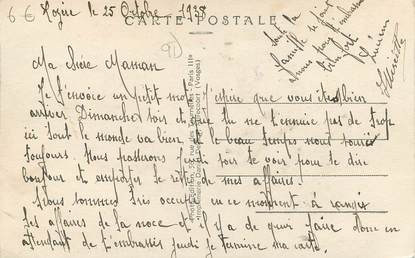 6€ Hogée le 25 Octobre 1938
CARTE POSTALE
Ma chère Maman
Je t'envoie un petit mot j'espère que vous êtes bien
arriver Dimanche soir et que tu ne t'ennuie pas de trop
ici tout le monde va bien, le beau temps nous souris
toujours. Nous passerons te voir pour te dire
bonjour et emporter le reste de mes affaires.
Nous sommes très occuper en ce moment à ranger
les affaires de la noce et il y a de quoi faire donc en
attendant de t'embrasser jeudi je termine ma carte.
toute la
famille se joint
à nous pour t'embrasser
bien fort
Lucien